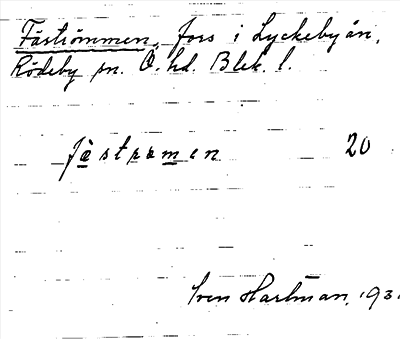 Fåströmmen, fors i Lyckebyån,
Rödeby sn. Ö. hd. Blek. l.
fåstrømen 20
Sven Hartman, 193